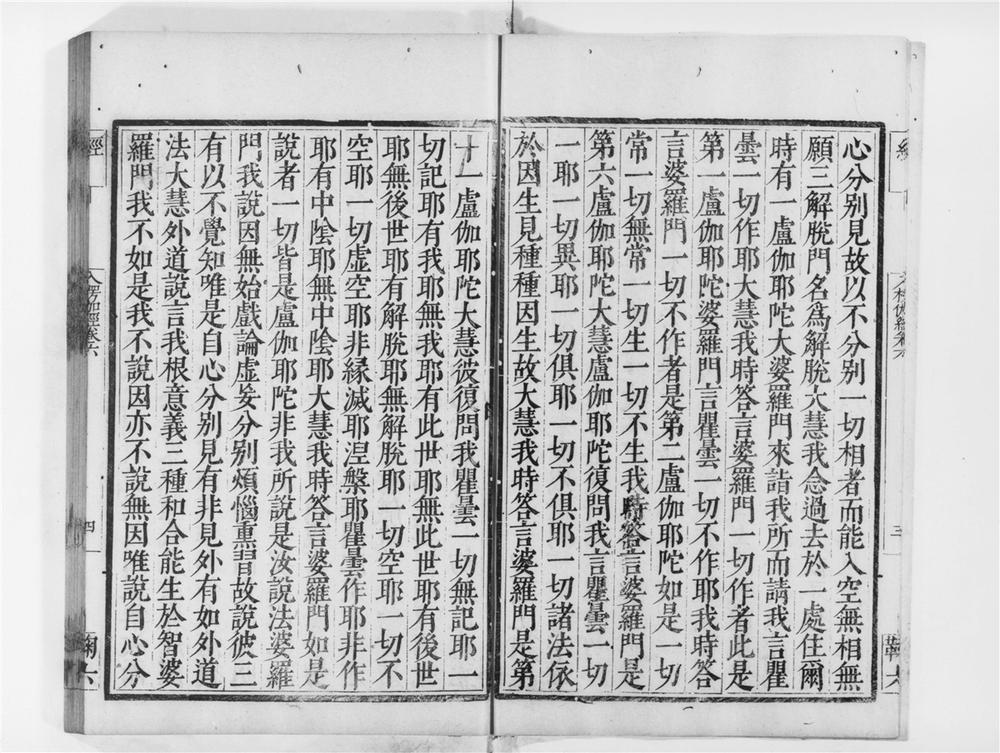 心分别見故以不分别一切相者而能入空無相無
願三解脫門名爲解脫大慧我念過去於一處住爾
時有一盧伽耶陀大婆羅門來詣我所而請我言瞿
曇一切作耶大慧我時答言婆羅門一切作者此是
第一盧伽耶陀婆羅門言瞿曇一切不作耶我時答
言婆羅門一切不作者是第二盧伽耶陀如是一切
常一切無常一切生一切不生我時答言婆羅門是
第六盧伽耶陀大慧盧伽耶陀復問我言瞿曇一切
一耶一切異耶一切俱耶一切不俱耶一切諸法依
於因生見種種因生故大慧我時答言婆羅門是第
十一盧伽耶陀大慧彼復問我瞿曇一切無記耶一
切記耶有我耶無我耶有此世耶無此世耶有後世
耶無後世耶有解脫耶無解脫耶一切空耶一切不
空耶一切虛空耶非緣滅耶涅槃耶瞿曇作耶非作
耶有中陰耶無中陰耶大慧我時答言婆羅門如是
說者一切皆是盧伽耶陀非我所說是汝說法婆羅
門我說因無始戲論虛妄分别煩惱熏習故說彼三
有以不覺知唯是自心分别見有非見外有如外道
法大慧外道說言我根意義三種和合能生於智婆
羅門我不如是我不說因亦不說無因唯說自心分
經
入楞伽經卷六
四
三
六